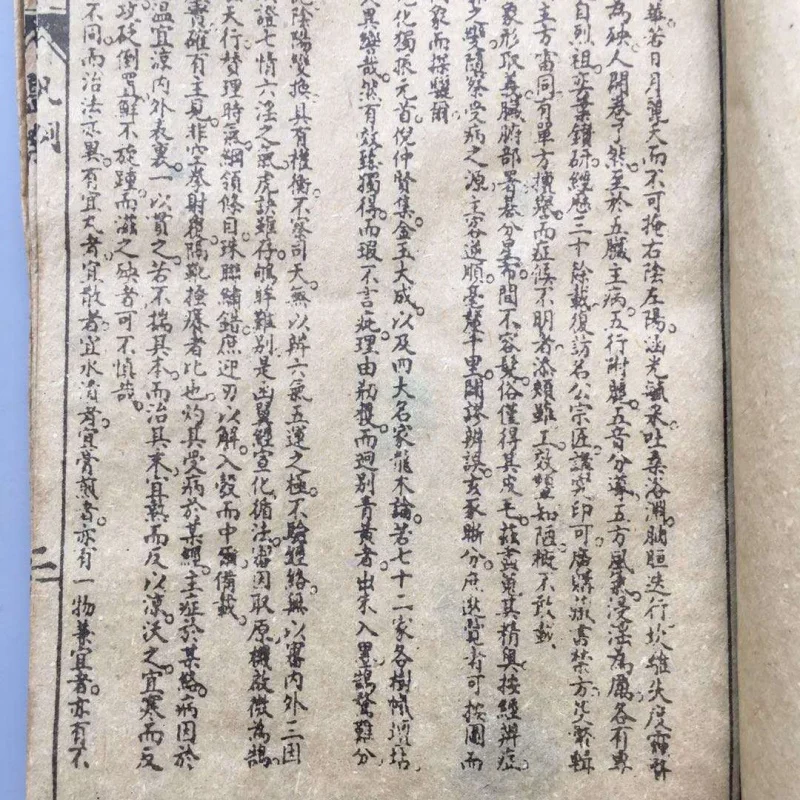 華若日月麗天而不可掩右陰左陽涵光毓采吐桑谷淵腑胆迭行坎維失度
為殃人開卷了然至於五臟主病五行附麗五音分導五方風氣浸淫為厲各有專
自烈祖玄業鑽研經歷三十餘載復訪名公宗匠講究印可廣購秘書禁方
主方雷同有單方擅譽而症候不明者添頰雖工效顰知陋概不敢載
象形取義臟腑部署碁分星布間不容髮俗僅得其皮毛茲盡蒐其精與按經辨症
之雙睛察受病之源主客逆順毫釐千里關謬辨誤亥豕晰分庶幾覽者可按圖而
家而探驪爾
化獨振元首倪仲賢集金玉大成以及四大名家龍木論若七十二家各樹幟壇坫
大異變哉然有效臻獨得而瑕不言疵理由勒獲而迥別青黃者出末入墨鵠驚難分
陰陽變換具有權衡不察司天無以辨六氣五運之極不驗經絡無以審內外三因
證七情六淫之氣虎訣雖存鴝眸難別是函翼經宣化循法審因取原機啟微為鵠
天行贊理時氣綱領條目珠聯繡錯庶迎刃以解入彀而中預備載
青確有主見非空拳射覆隔靴搔癢者比也灼其受病於某經主症於某絡病因於
溫宜涼內外表裏一以貫之若不揣其本而治其末宜熱而反以涼沃之宜寒而反
攻砭倒置鮮不旋踵而滋之殃者可不慎哉
不同而治法亦異有宜丸者宜散者宜水漬者宜膏煎者亦有一物兼宜者亦有不
凡例
二